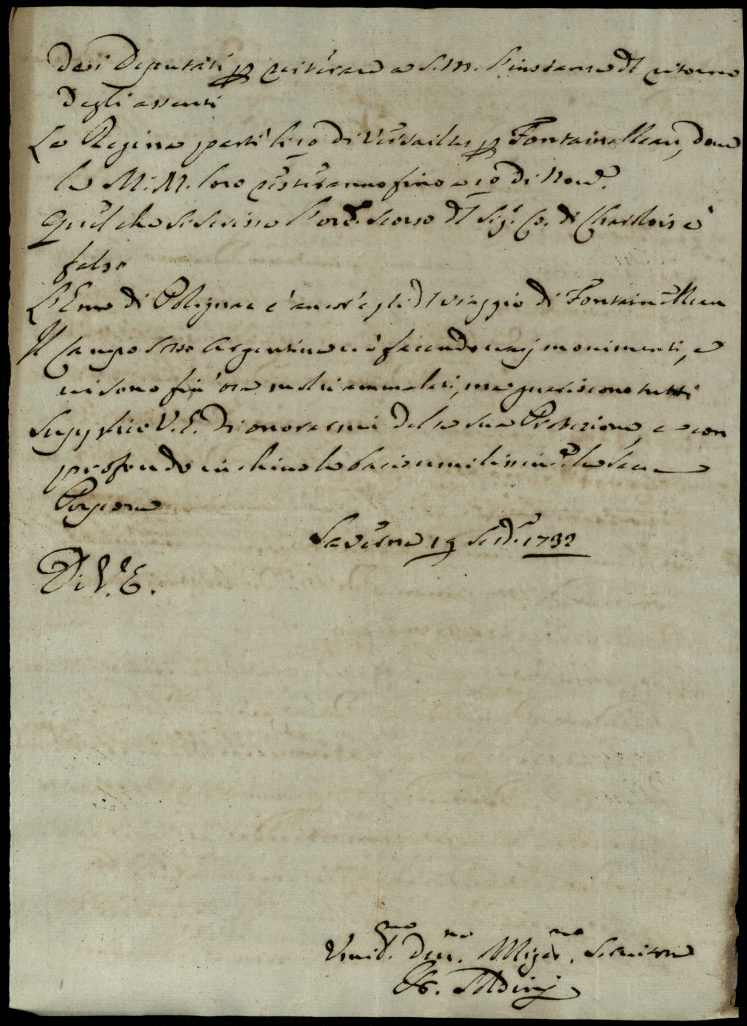 dei Deputati p reiterare a S. M. l'instanza dl ritorno
degli assenti
La Regina parti li 19 di Versailles p Fontainebleau, dove
le M. M. loro resteranno fino a 10 di Nov.e
Quel che si scrisse l'ord. scorso dl Sig.r Co. di Charlois è
falso
L'Emo di Polignac è anch'egli dl viaggio di Fontainebleau
Il Campo sotto Argentina và facendo varj movimenti, e
vi sono fin'ora molti ammalati, ma guariscono tutti
Supplico V. E. di onorarmi della sua Protezione, e con
profondo inchino le bacio umilissim.e la Sacra
Porpora
Saverna 19 Sett.e 1732
Di V.a E.
Umil.mo Dev.mo Servitore